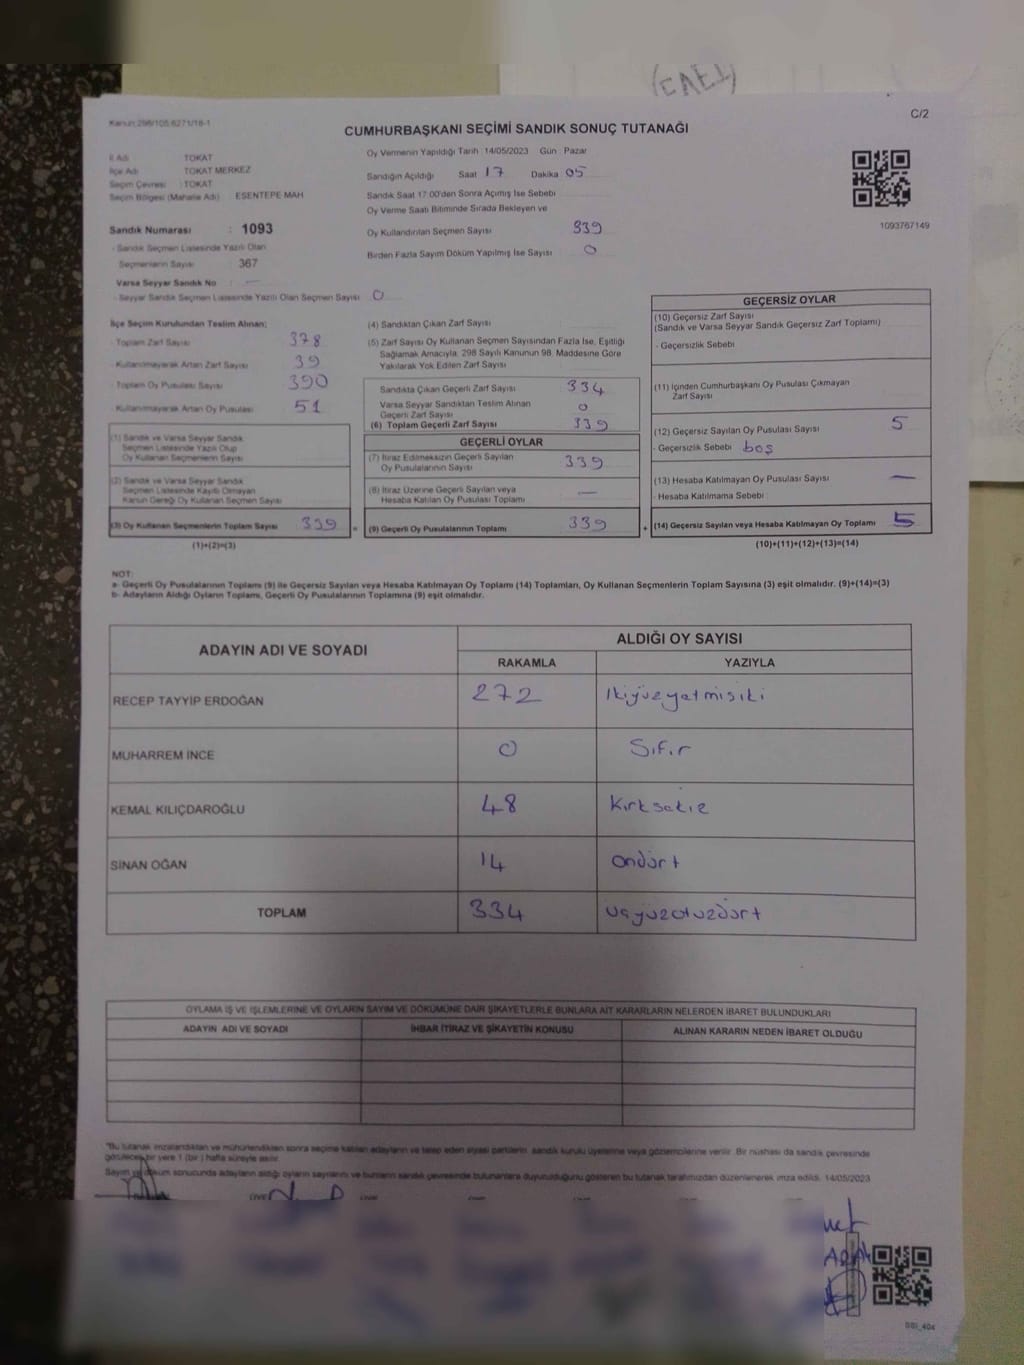 (CAET)
Kanun:298/105.6271/18-1
C/2
CUMHURBAŞKANI SEÇİMİ SANDIK SONUÇ TUTANAĞI
İl Adı TOKAT
İlçe Adı TOKAT MERKEZ
Seçim Çevresi : TOKAT
Seçim Bölgesi (Mahalle Adı) : ESENTEPE MAH
Oy Vermenin Yapıldığı Tarih :14/05/2023 Gün : Pazar
Sandığın Açıldığı Saat 17 Dakika 05
Sandık Saat 17:00'den Sonra Açılmış İse Sebebi
Oy Verme Saati Bitiminde Sırada Bekleyen ve
Oy Kullandırılan Seçmen Sayısı 339
Birden Fazla Sayım Döküm Yapılmış İse Sayısı 0
1093767149
Sandık Numarası : 1093
- Sandık Seçmen Listesinde Yazılı Olan
Seçmenlerin Sayısı : 367
Varsa Seyyar Sandık No : —
- Seyyar Sandık Seçmen Listesinde Yazılı Olan Seçmen Sayısı 0
İlçe Seçim Kurulundan Teslim Alınan;
- Toplam Zarf Sayısı 378
- Kullanılmayarak Artan Zarf Sayısı 39
- Toplam Oy Pusulası Sayısı 390
- Kullanılmayarak Artan Oy Pusulası 51
(1) Sandık ve Varsa Seyyar Sandık
Seçmen Listesinde Yazılı Olup
Oy Kullanan Seçmenlerin Sayısı
(2) Sandık ve Varsa Seyyar Sandık
Seçmen Listesinde Kayıtlı Olmayan
Kanun Gereği Oy Kullanan Seçmen Sayısı
(3) Oy Kullanan Seçmenlerin Toplam Sayısı 339 =
(1)+(2)=(3)
(4) Sandıktan Çıkan Zarf Sayısı
(5) Zarf Sayısı Oy Kullanan Seçmen Sayısından Fazla İse, Eşitliği
Sağlamak Amacıyla; 298 Sayılı Kanunun 98. Maddesine Göre
Yakılarak Yok Edilen Zarf Sayısı
Sandıkta Çıkan Geçerli Zarf Sayısı 334
Varsa Seyyar Sandıktan Teslim Alınan
Geçerli Zarf Sayısı 0
(6) Toplam Geçerli Zarf Sayısı 339
GEÇERLİ OYLAR
(7) İtiraz Edilmeksizin Geçerli Sayılan
Oy Pusulalarının Sayısı 339
(8) İtiraz Üzerine Geçerli Sayılan veya
Hesaba Katılan Oy Pusulası Toplamı —
(9) Geçerli Oy Pusulalarının Toplamı 339 +
GEÇERSİZ OYLAR
(10) Geçersiz Zarf Sayısı
(Sandık ve Varsa Seyyar Sandık Geçersiz Zarf Toplamı)
- Geçersizlik Sebebi
(11) İçinden Cumhurbaşkanı Oy Pusulası Çıkmayan
Zarf Sayısı
(12) Geçersiz Sayılan Oy Pusulası Sayısı 5
- Geçersizlik Sebebi boş
(13) Hesaba Katılmayan Oy Pusulası Sayısı —
- Hesaba Katılmama Sebebi
(14) Geçersiz Sayılan veya Hesaba Katılmayan Oy Toplamı 5
(10)+(11)+(12)+(13)=(14)
NOT:
a- Geçerli Oy Pusulalarının Toplamı (9) ile Geçersiz Sayılan veya Hesaba Katılmayan Oy Toplamı (14) Toplamları, Oy Kullanan Seçmenlerin Toplam Sayısına (3) eşit olmalıdır. (9)+(14)=(3)
b- Adayların Aldığı Oyların Toplamı, Geçerli Oy Pusulalarının Toplamına (9) eşit olmalıdır.
ADAYIN ADI VE SOYADI ALDIĞI OY SAYISI
RAKAMLA YAZIYLA
RECEP TAYYİP ERDOĞAN 272 İkiyüzyetmişiki
MUHARREM İNCE 0 Sıfır
KEMAL KILIÇDAROĞLU 48 Kırksekiz
SİNAN OĞAN 14 ondört
TOPLAM 334 üçyüzotuzdört
OYLAMA İŞ VE İŞLEMLERİNE VE OYLARIN SAYIM VE DÖKÜMÜNE DAİR ŞİKAYETLERLE BUNLARA AİT KARARLARIN NELERDEN İBARET BULUNDUKLARI
ADAYIN ADI VE SOYADI İHBAR İTİRAZ VE ŞİKAYETİN KONUSU ALINAN KARARIN NEDEN İBARET OLDUĞU
*Bu tutanak imzalandıktan ve mühürlendikten sonra seçime katılan adayların ve talep eden siyasi partilerin, sandık kurulu üyelerine veya gözlemcilerine verilir. Bir nüshası da sandık çevresinde
görülecek bir yere 1 (bir) hafta süreyle asılır.
Sayım ve döküm sonucunda adayların aldığı oyların sayılarını ve bunların sandık çevresinde bulunanlara duyurulduğunu gösteren bu tutanak tarafımızdan düzenlenerek imza edildi. 14/05/2023